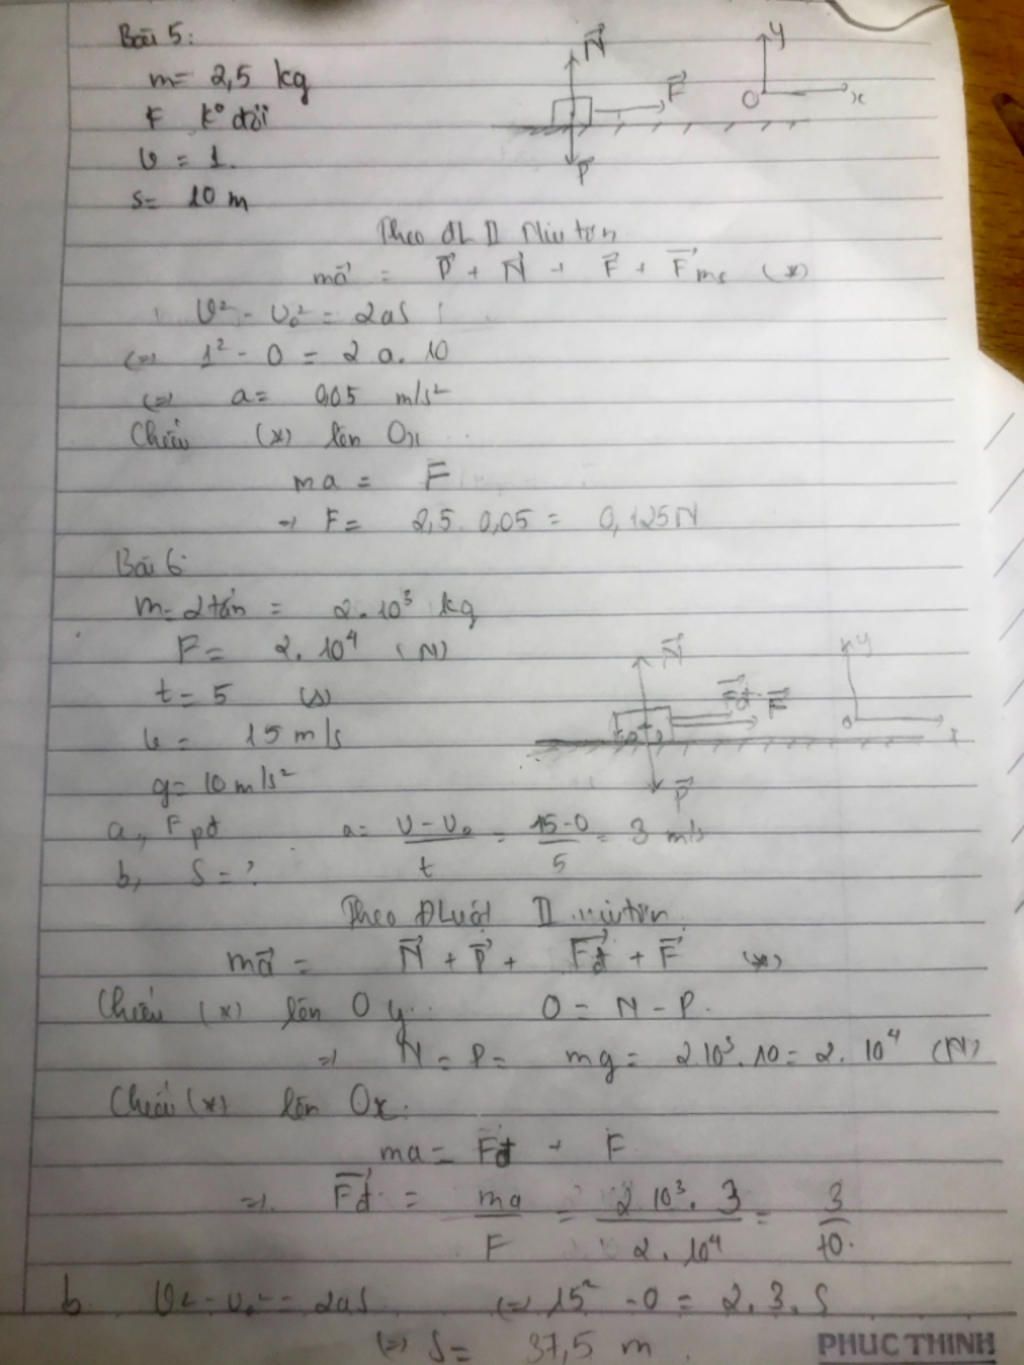 Bài 5:
m = 2,5 kg
F k° đổi
v = 1.
s = 10 m
N
F
P
y
O
x
Theo ĐL II Niu tơn
ma = P + N + F + Fms (*)
v² - v₀² = 2as
(=) 1² - 0 = 2 a. 10
(=) a = 0,05 m/s²
Chiếu (*) lên Ox
ma = F
=> F = 2,5. 0,05 = 0,125N
Bài 6:
m = 2 tấn = 2.10³ kg
F = 2. 10⁴ (N)
t = 5 (s)
v = 15 m/s
g = 10 m/s²
N
Fđ F
P
y
O
x
a, Fpđ a = (v - v₀)/t = (15-0)/5 = 3 m/s
b, S = ?
Theo ĐLuật II niutơn
ma = N + P + Fđ + F (*)
Chiếu (*) lên Oy: 0 = N - P.
=> N = P = mg = 2.10³.10 = 2. 10⁴ (N)
Chiếu (*) lên Ox:
ma = Fđ + F
=> Fđ = ma/F = (2.10³. 3)/(2. 10⁴) = 3/10.
b v² - v₀² = 2as (=) 15² - 0 = 2. 3. S
(=) S = 37,5 m
PHUC THINH